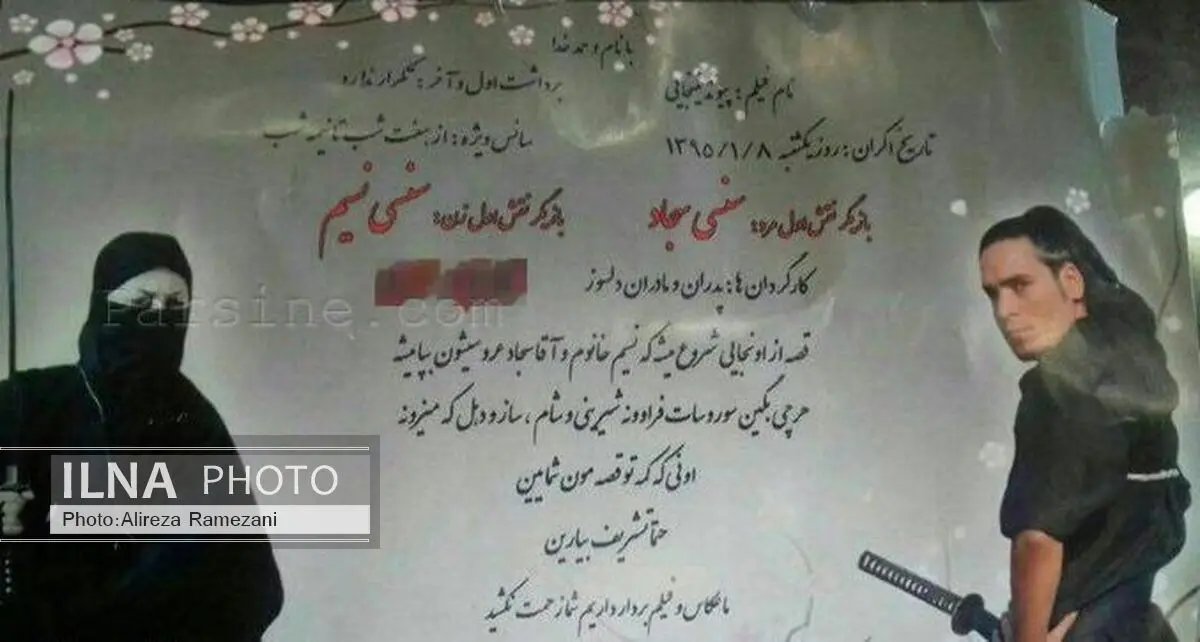 با نام و حمد خدا
نام فیلم: پیوند نینجایی
برداشت اول و آخر: تکرار نداره
تاریخ اکران: روز یکشنبه ۱۳۹۵/۱/۸
سانس ویژه: از هفت شب تا نیمه شب
بازیگر نقش اول مرد: سنسی سجاد
بازیگر نقش اول زن: سنسی نسیم
کارگردان ها: پدران و مادران دلسوز
Parsine.com
قصه از اونجایی شروع میشه که نسیم خانوم و آقا سجاد عروسیشون بپا میشه
هرچی بگین سوروسات فراوونه شیرینی و شام، ساز و دهل که میزونه
اونی که کمه تو قصه مون شمایین
حتما تشریف بیارین
ما عکاس و فیلم بردار داریم شما زحمت نکشید
ILNA PHOTO
Photo:Alireza Ramezani